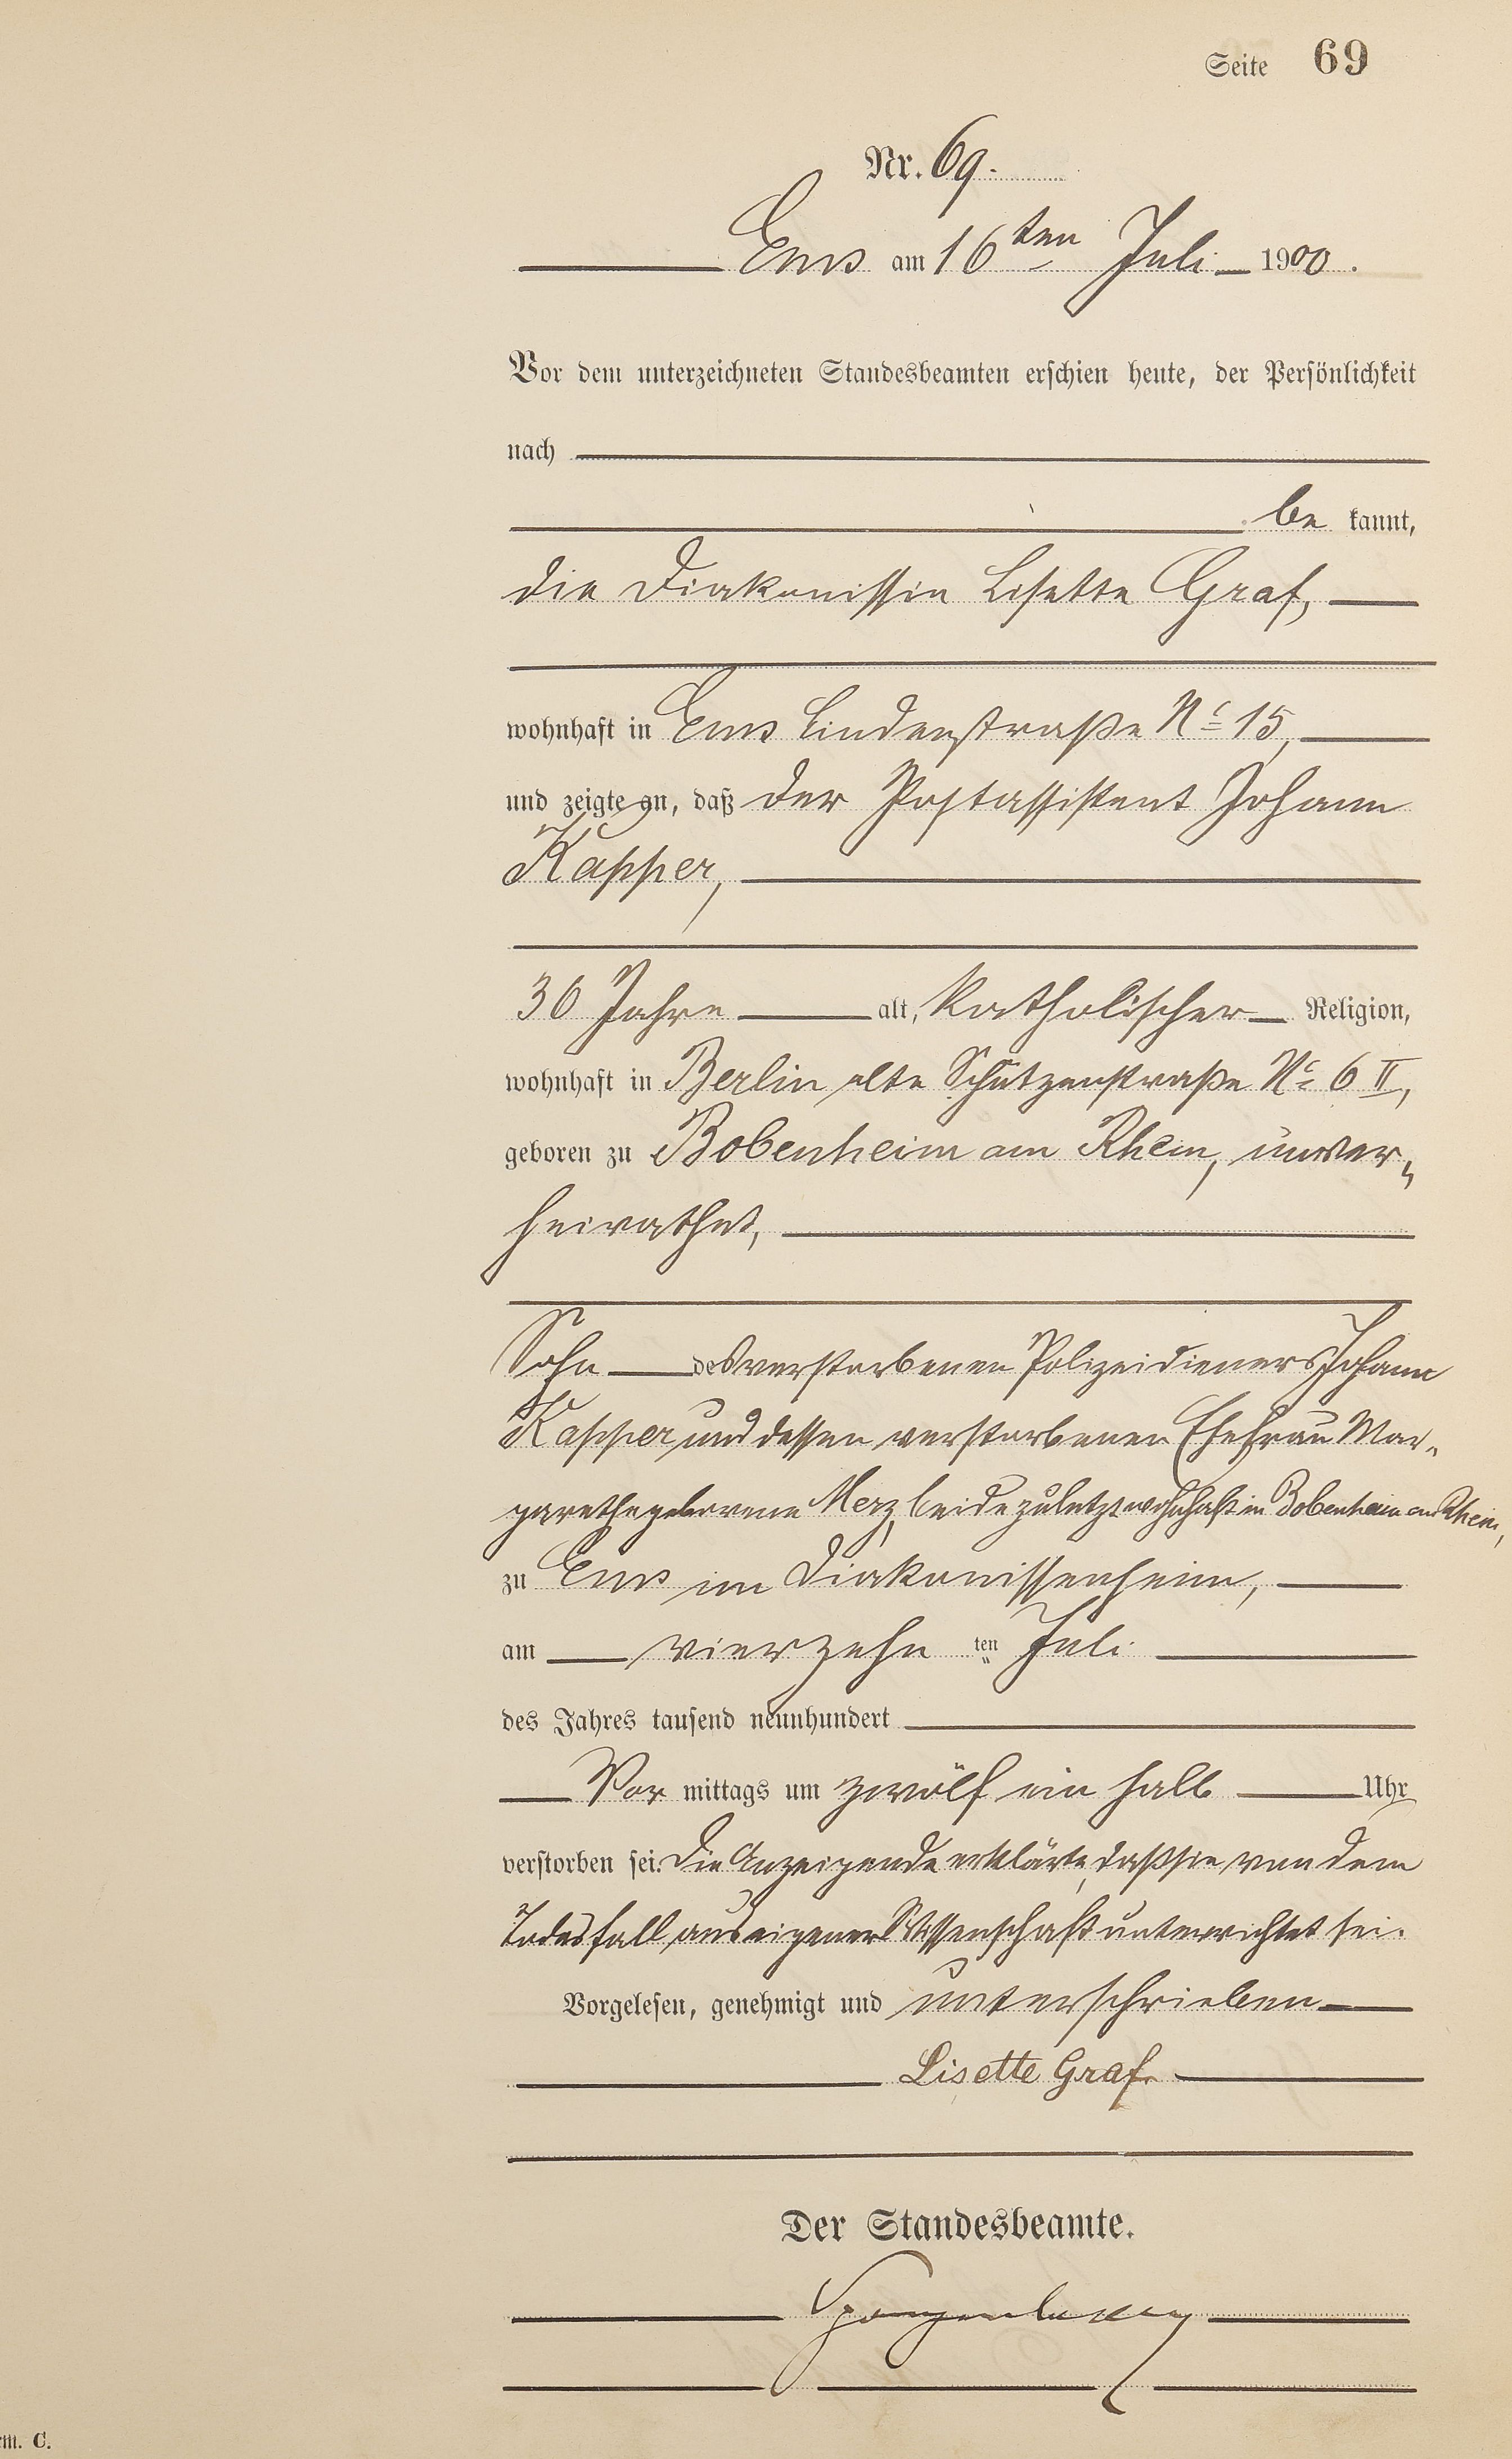 Seite 69
Nr. 69.
Ems am 16ten Juli 1900.
Vor dem unterzeichneten Standesbeamten erschien heute, der Persönlichkeit
nach
be kannt,
die Diakonissin Lisette Graf,
wohnhaft in Ems Lindenstraße No 15,
und zeigte an, daß der Postassistent Johann
Kapper,
30 Jahre alt, katholischer Religion,
wohnhaft in Berlin alte Schützenstraße No 6 II,
geboren zu Bobenheim am Rhein, unver„
heirathet,
Sohn des verstorbenen Polizeidieners Johann
Kapper und dessen verstorbenen Ehefrau Mar„
garethe geborene Merz, beide zuletzt wohnhaft in Bobenheim am Rhein,
zu Ems im Diakonissenheim,
am vierzehn ten Juli
des Jahres tausend neunhundert
Vor mittags um zwölf ein halb Uhr
verstorben sei. Die Anzeigende erklärte, daß sie von dem
Todesfall aus eigener Wissenschaft unterrichtet sei.
Vorgelesen, genehmigt und unterschrieben
Lisette Graf.
Der Standesbeamte.
m. C.